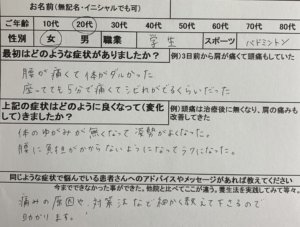 お名前(無記名・イニシャルでも可)
ご年齢 10代 20代 30代 40代 50代 60代 70代 80代
性別 女 男 職業 学生 スポーツ バドミントン
最初はどのような症状がありましたか? 例)3日前から肩が痛くて頭痛もしていた
腰が痛くて体がダルかった
座ってても5分で痛くてしびれがでるくらいだった
上記の症状はどのように良くなって(変化して)きましたか? 例)頭痛は治療後に無くなり、肩の痛みも改善してきた
体のゆがみが無くなって姿勢がよくなった。
腰に負担がかからないようになってラクになった。
同じような症状で悩んでいる患者さんへのアドバイスやメッセージがあれば教えてください
今までできなかった事ができた。他院と比べてここが違う。養生法を実践してみて等々。
痛みの原因や、対策法など細かく教えて下さるので
助かります。